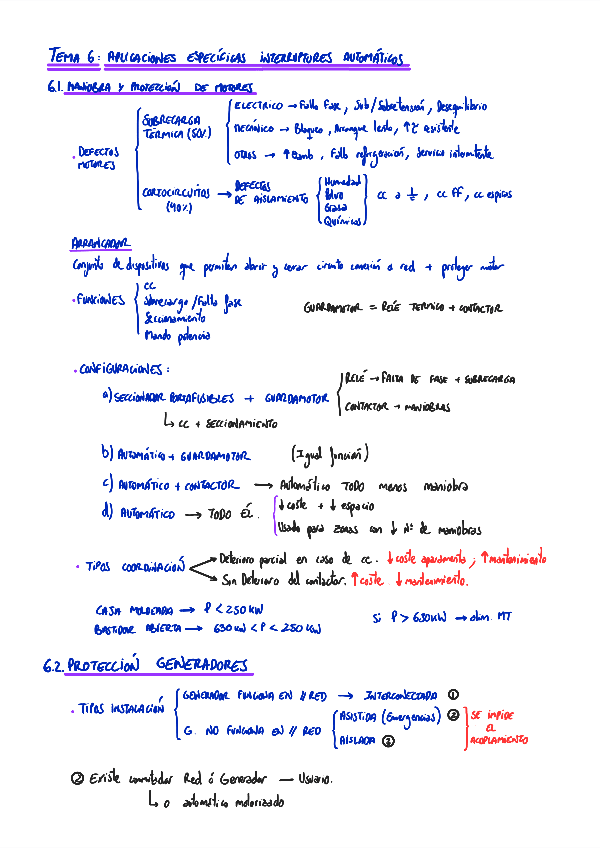 TEMA 6: APLICACIONES ESPECÍFICAS INTERRUPTORES AUTOMÁTICOS
6.1. MANIOBRA Y PROTECCIÓN DE MOTORES
· DEFECTOS MOTORES
SOBRECARGA TÉRMICA (50%)
ELECTRICO → Fallo Fase, Sub/Sobretensión, Desequilibrio
MECÁNICO → Bloqueo, Arranque lento, ↑ζ resistente
OTROS → ↑Tamb, Fallo refrigeración, Servicio intermitente
CORTOCIRCUITOS (40%) → DEFECTOS DE AISLAMIENTO
Humedad
Polvo
Grasa
Químicos
CC a ⏚, CC FF, CC espiras
ARRANCADOR
Conjunto de dispositivos que permiten abrir y cerrar circuito conexión a red + proteger motor
· FUNCIONES
CC
Sobrecarga/Fallo fase
Seccionamiento
Mando potencia
GUARDAMOTOR = RELÉ TERMICO + CONTACTOR
· CONFIGURACIONES:
a) SECCIONADOR PORTAFUSIBLES + GUARDAMOTOR
↳ CC + SECCIONAMIENTO
RELÉ → FALTA DE FASE + SOBRECARGA
CONTACTOR → MANIOBRAS
b) AUTOMÁTICO + GUARDAMOTOR (Igual función)
c) AUTOMÁTICO + CONTACTOR → Automático TODO menos maniobra
d) AUTOMÁTICO → TODO ÉL.
↓coste + ↓espacio
Usado para zonas con ↓ Nº de maniobras
· TIPOS COORDINACIÓN
Deterioro parcial en caso de cc. ↓coste aparamenta; ↑mantenimiento
Sin Deterioro del contactor. ↑coste ↓mantenimiento.
CAJA MOLDEADA → P < 250 KW
BASTIDOR ABIERTA → 630 KW < P < 250 KW
Si P > 630 KW → alim. MT
6.2. PROTECCIÓN GENERADORES
· TIPOS INSTALACIÓN
GENERADOR FUNCIONA EN // RED → INTERCONECTADA ①
G. NO FUNCIONA EN // RED
ASISTIDA (Emergencias) ②
AISLADA ③
SE IMPIDE EL ACOPLAMIENTO
② Existe conmutador Red ó Generador — Usuario.
↳ o automático motorizado